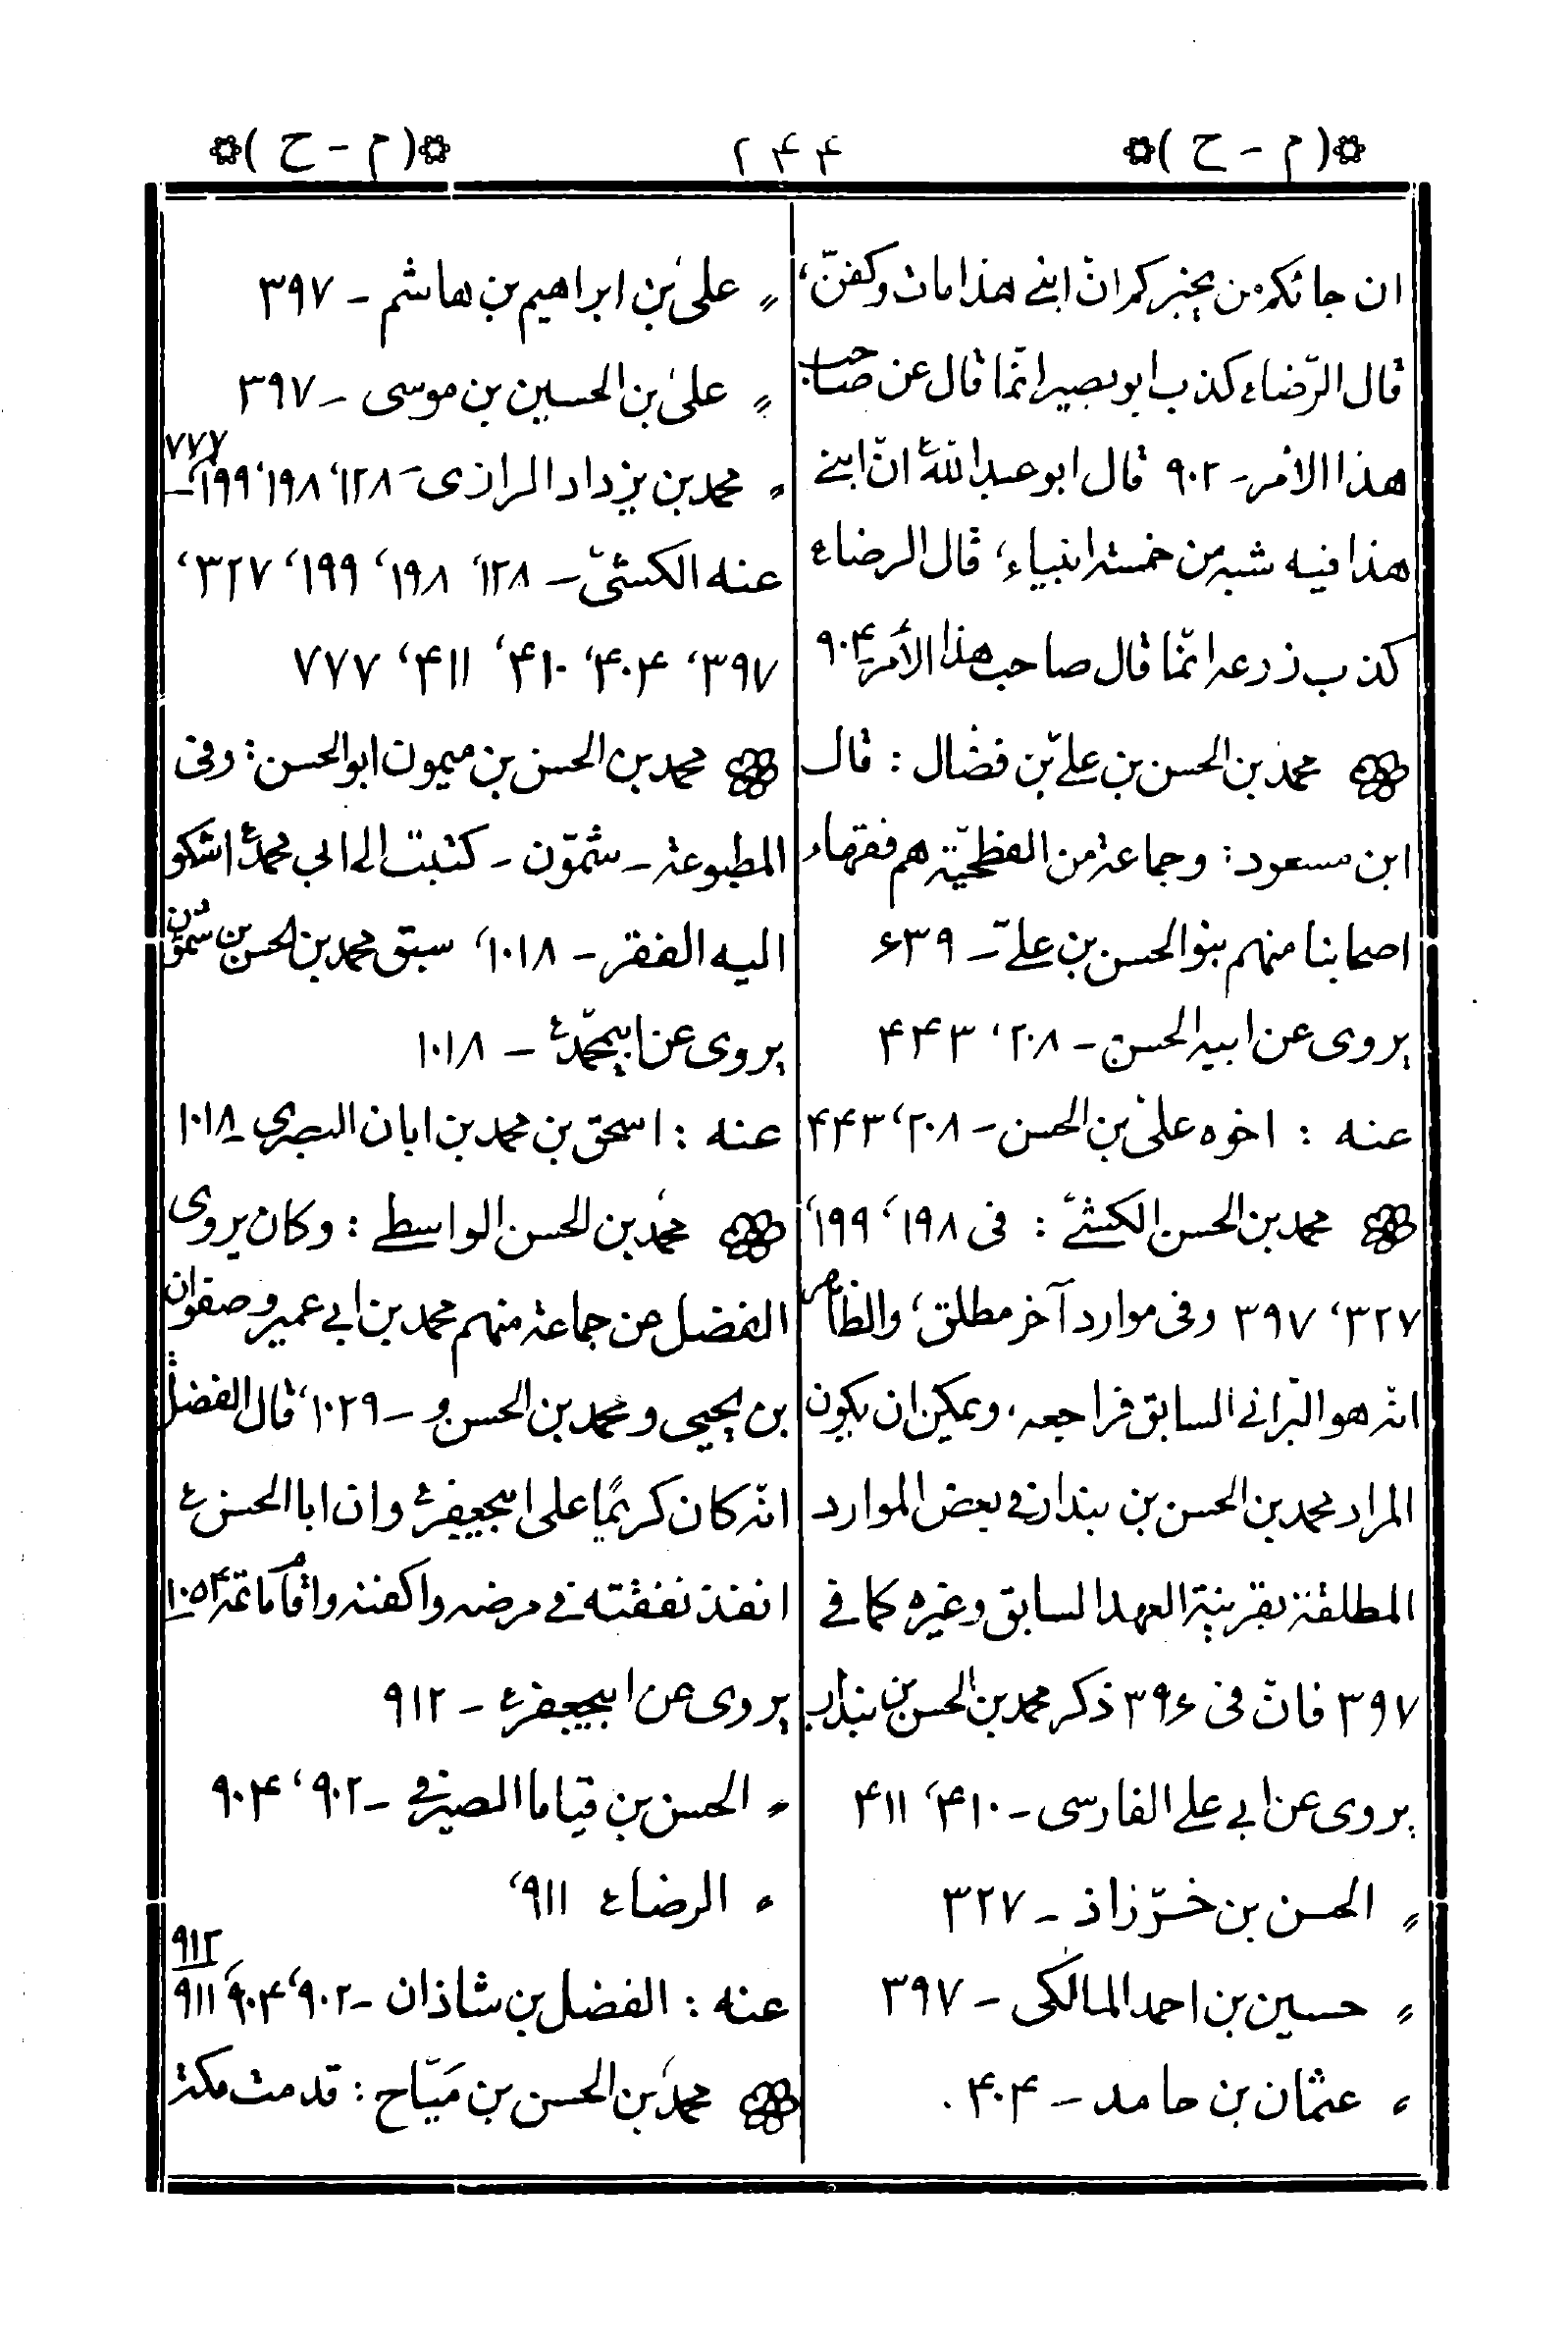 (م - ح) ۲۴۴ (م - ح)
ان جائكم من يخبركم انّ ابنى هذا مات وكفن،
قال الرّضاء كذب ابو بصير انّما قال عن صاحب
هذا الامر- ۹۰۲ قال ابو عبد اللّهء انّ ابنى
هذا فيه شبه من خمسة انبياء، قال الرضاء
كذب زرعه انّما قال صاحب هذا الأمر- ۹۰۴
محمد بن الحسن بن علىّ بن فضّال : قال
ابن مسعود : وجماعة من الفطحيّة هم فقهاء
اصحابنا منهم بنو الحسن بن علىّ - ۶۳۹
يروى عن ابيه الحسن - ۲۰۸، ۴۴۳
عنه : اخوه علىّ بن الحسن - ۲۰۸، ۴۴۳
محمد بن الحسن الكشّىّ : فى ۱۹۸، ۱۹۹،
۳۲۷، ۳۹۷ وفى موارد آخر مطلق، والظاهر
انّه هو البرّانى السابق فراجعه، ويمكن ان يكون
المراد محمد بن الحسن بن بندار فى بعض الموارد
المطلقة بقرينة العهد السابق وغيره كما فى
۳۹۷ فانّ فى ۳۹۶ ذكر محمد بن الحسن بن بندار
يروى عن ابى على الفارسى - ۴۱۰، ۴۱۱
〃 الحسن بن خرّزاذ - ۳۲۷
〃 حسين بن احمد المالكى - ۳۹۷
〃 عثمان بن حامد - ۴۰۴ .
〃 علىّ بن ابراهيم بن هاشم - ۳۹۷
〃 علىّ بن الحسين بن موسى - ۳۹۷
〃 محمد بن يزداد الرازى - ۱۲۸، ۱۹۸، ۱۹۹، ۷۷۷
عنه الكشىّ - ۱۲۸، ۱۹۸، ۱۹۹، ۳۲۷،
۳۹۷، ۴۰۴، ۴۱۰، ۴۱۱، ۷۷۷
محمد بن الحسن بن ميمون ابو الحسن : وفى
المطبوعة - شمّون - كتبت الى ابى محمدء اشكو
اليه الفقر - ۱۰۱۸، سبق محمد بن الحسن بن شمّون
يروى عن ابيمحمّدء - ۱۰۱۸
عنه : اسحق بن محمد بن ابان البصرى - ۱۰۱۸
محمد بن الحسن الواسطى : وكان يروى
الفضل عن جماعة منهم محمد بن ابى عمير وصفوان
بن يحيى ومحمد بن الحسن و - ۱۰۲۹، قال الفضل
انّه كان كريمًا على ابيجعفرء وان ابا الحسنء
انفذ نفقته فى مرضه واكفنه واقام ماتمه ۱۰۵۴
يروى عن ابيجعفرء - ۹۱۲
〃 الحسن بن قياما الصيرفى - ۹۰۲، ۹۰۴
〃 الرضاء ۹۱۱،
عنه : الفضل بن شاذان - ۹۰۲، ۹۰۴، ۹۱۱ ۹۱۲
محمد بن الحسن بن ميّاح : قدمت مكة